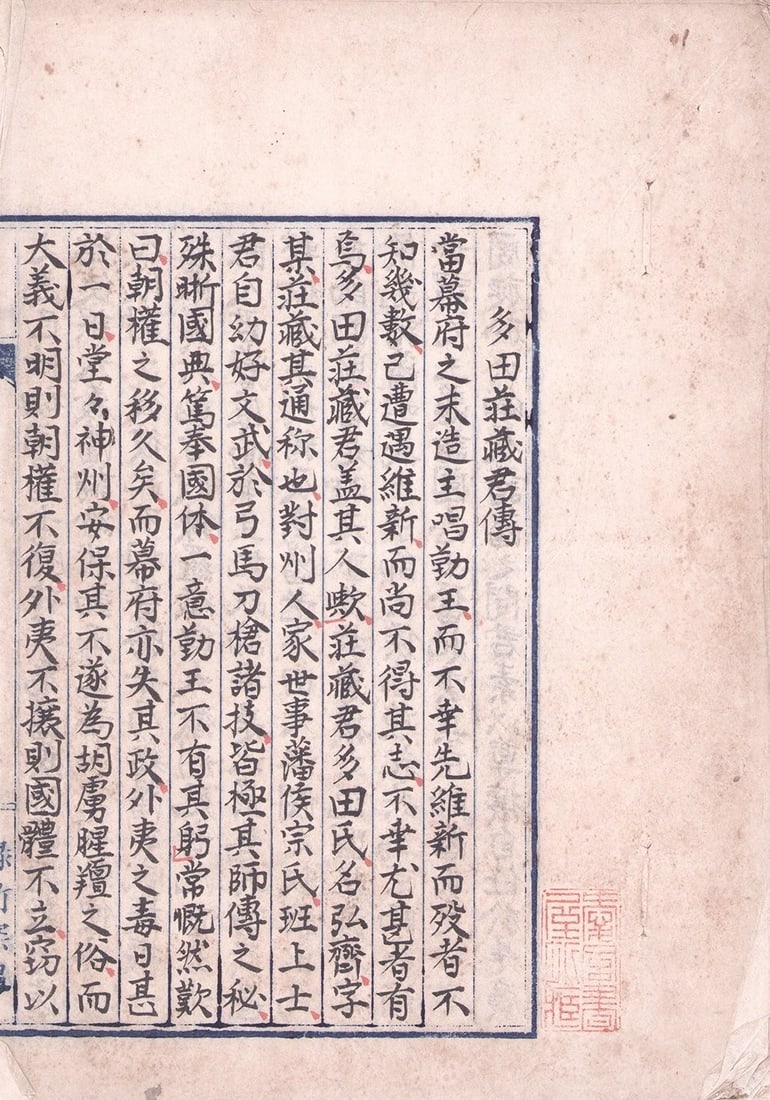 多田莊藏君傳
當幕府之末造主唱勤王而不幸先維新而歿者不
知幾數己遭遇維新而尚不得其志不幸尤甚者有
焉多田莊藏君盖其人歟莊藏君多田氏名弘齊字
某莊藏其通称也對州人家世事藩侯宗氏班上士
君自幼好文武於弓馬刀槍諸技皆極其師傳之秘
殊晣國典篤奉國体一意勤王不有其躬常慨然歎
曰朝權之移久矣而幕府亦失其政外夷之毒日甚
於一日堂々神州安保其不遂為胡虜腥羶之俗而
大義不明則朝權不復外夷不攘則國體不立窃以